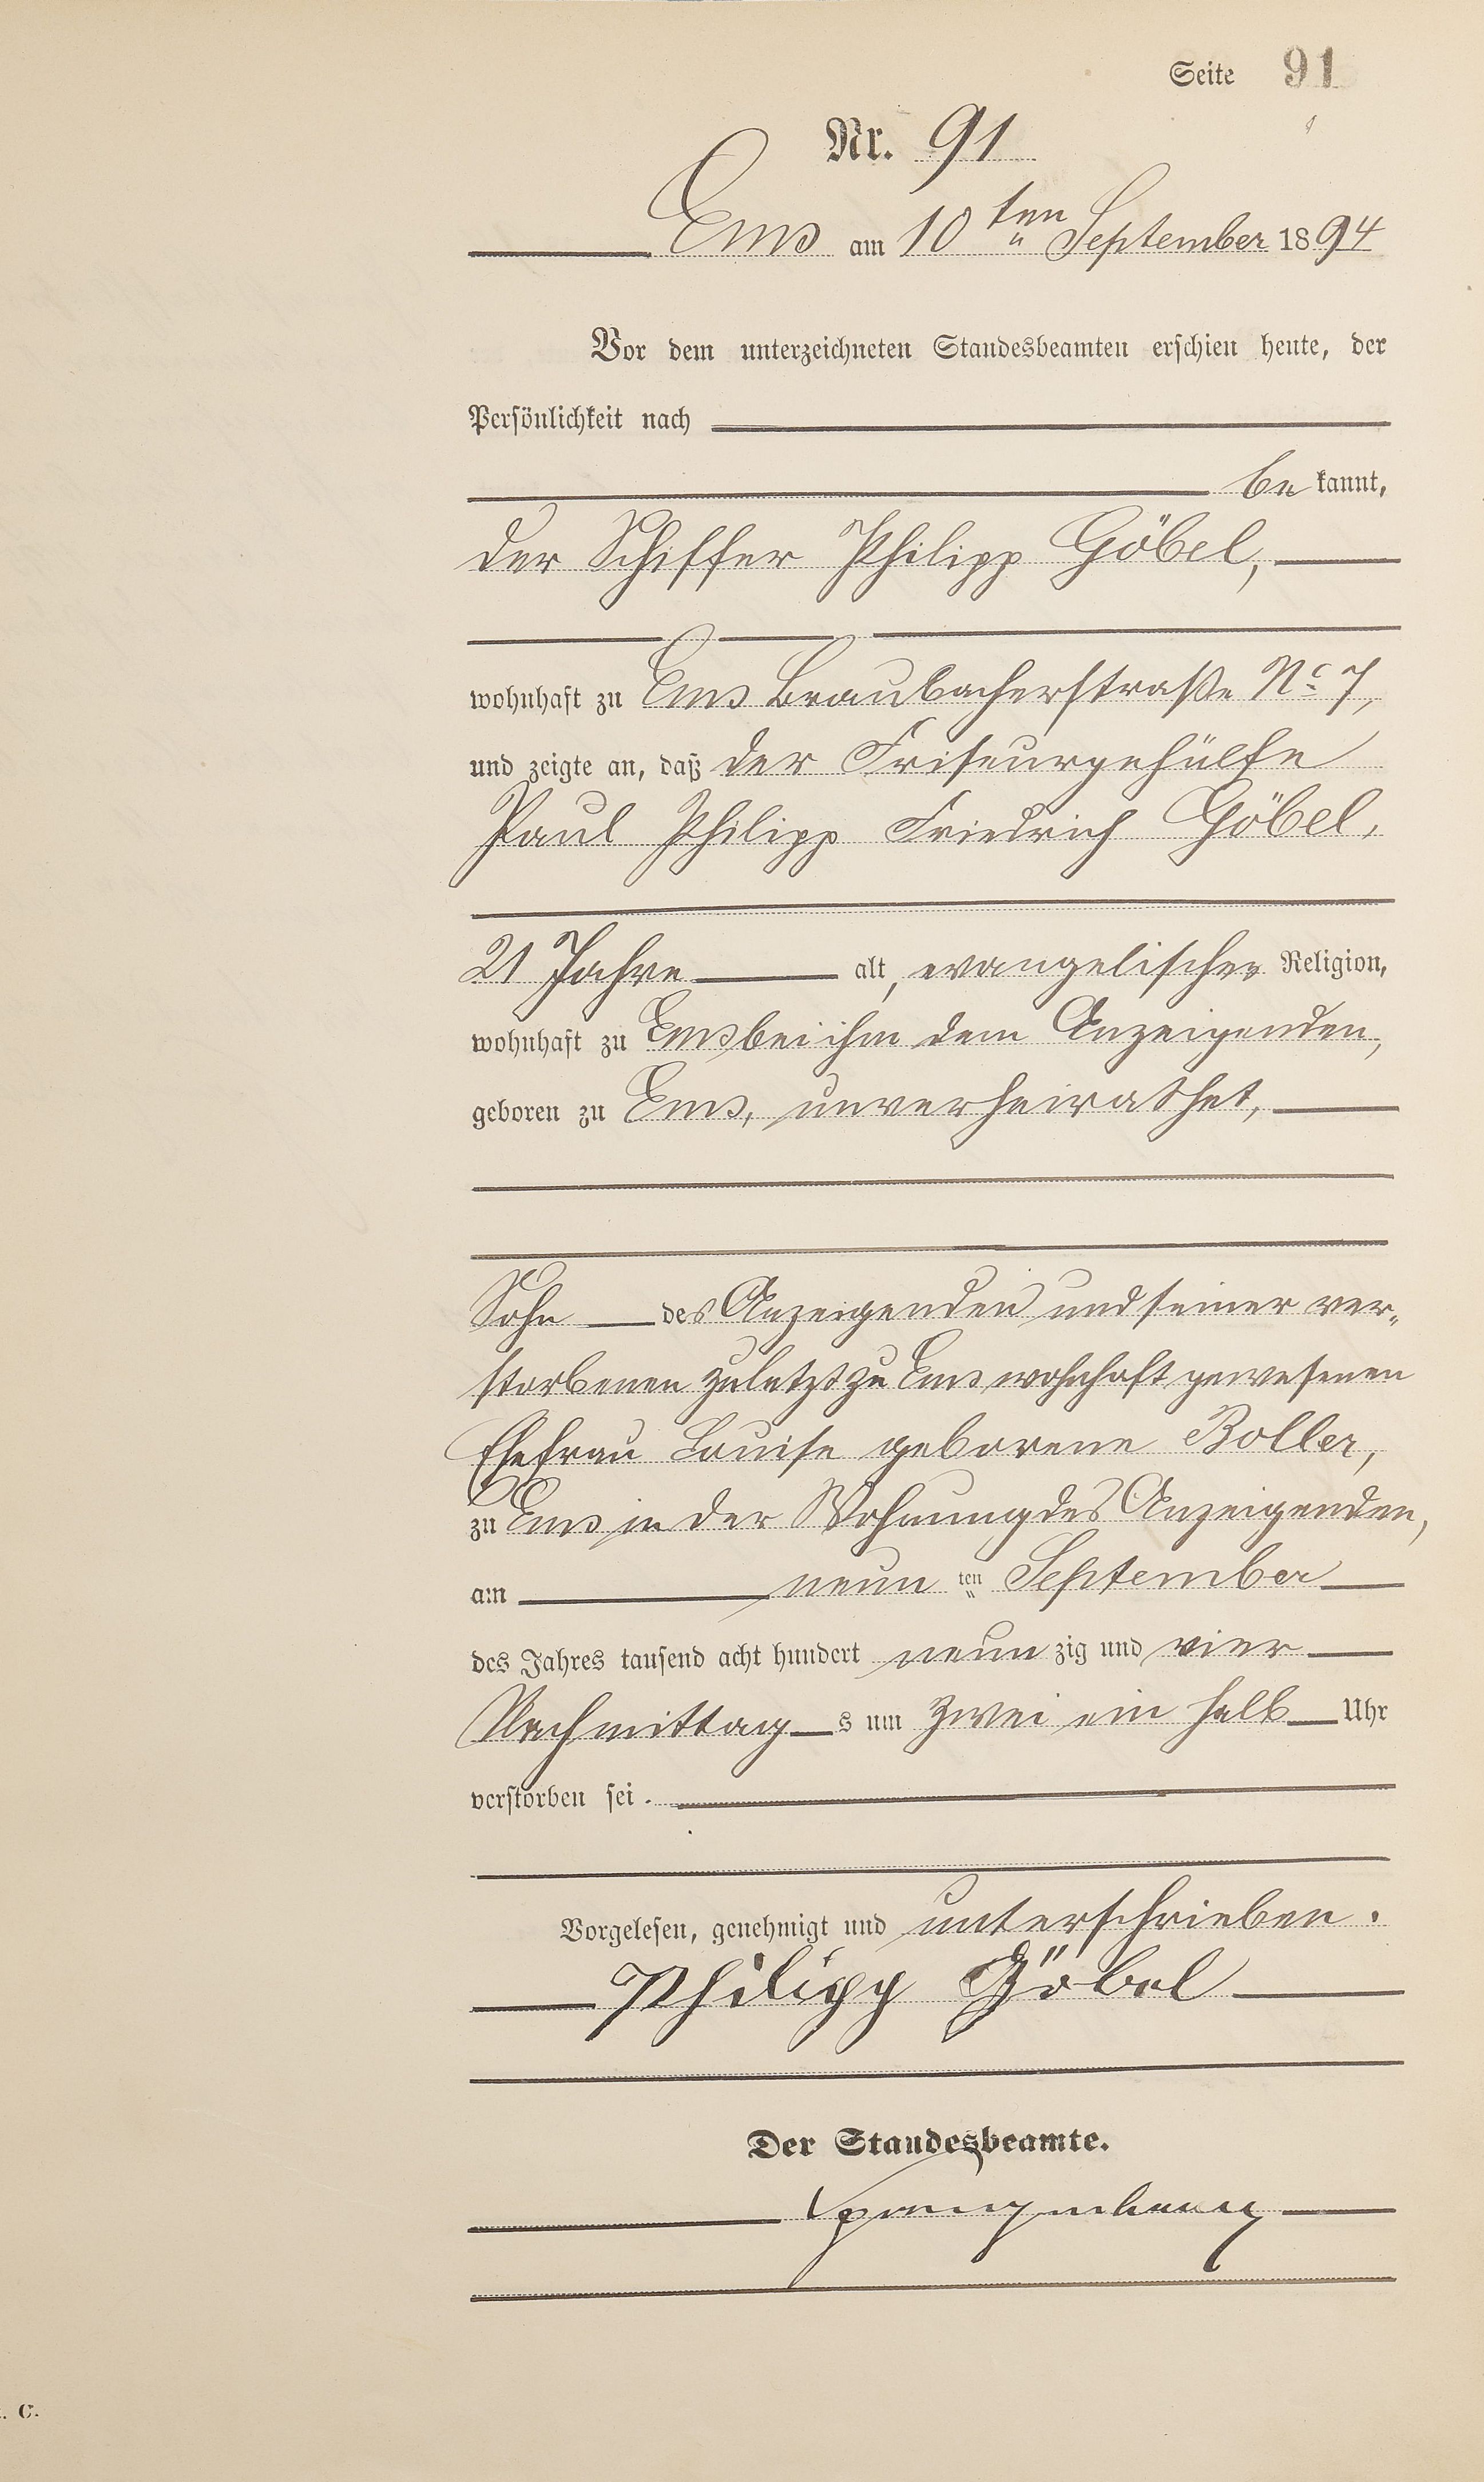 Seite 91
Nr. 91
Ems am 10ten September 1894
Vor dem unterzeichneten Standesbeamten erschien heute, der
Persönlichkeit nach
bekannt,
der Schiffer Philipp Göbel,
wohnhaft zu Ems Braubacherstraße No 7,
und zeigte an, daß der Friseurgehülfe
Paul Philipp Friedrich Göbel,
21 Jahre alt, evangelischer Religion,
wohnhaft zu Ems bei ihm dem Anzeigenden,
geboren zu Ems, unverheirathet,
Sohn des Anzeigenden und seiner ver-
storbenen zuletzt zu Ems wohnhaft gewesenen
Ehefrau Louise geborene Boller,
zu Ems in der Wohnung des Anzeigenden,
am neunten September
des Jahres tausend acht hundert neunzig und vier
Nachmittags um zwei ein halb Uhr
verstorben sei.
Vorgelesen, genehmigt und unterschrieben.
Philipp Göbel
Der Standesbeamte.
C.